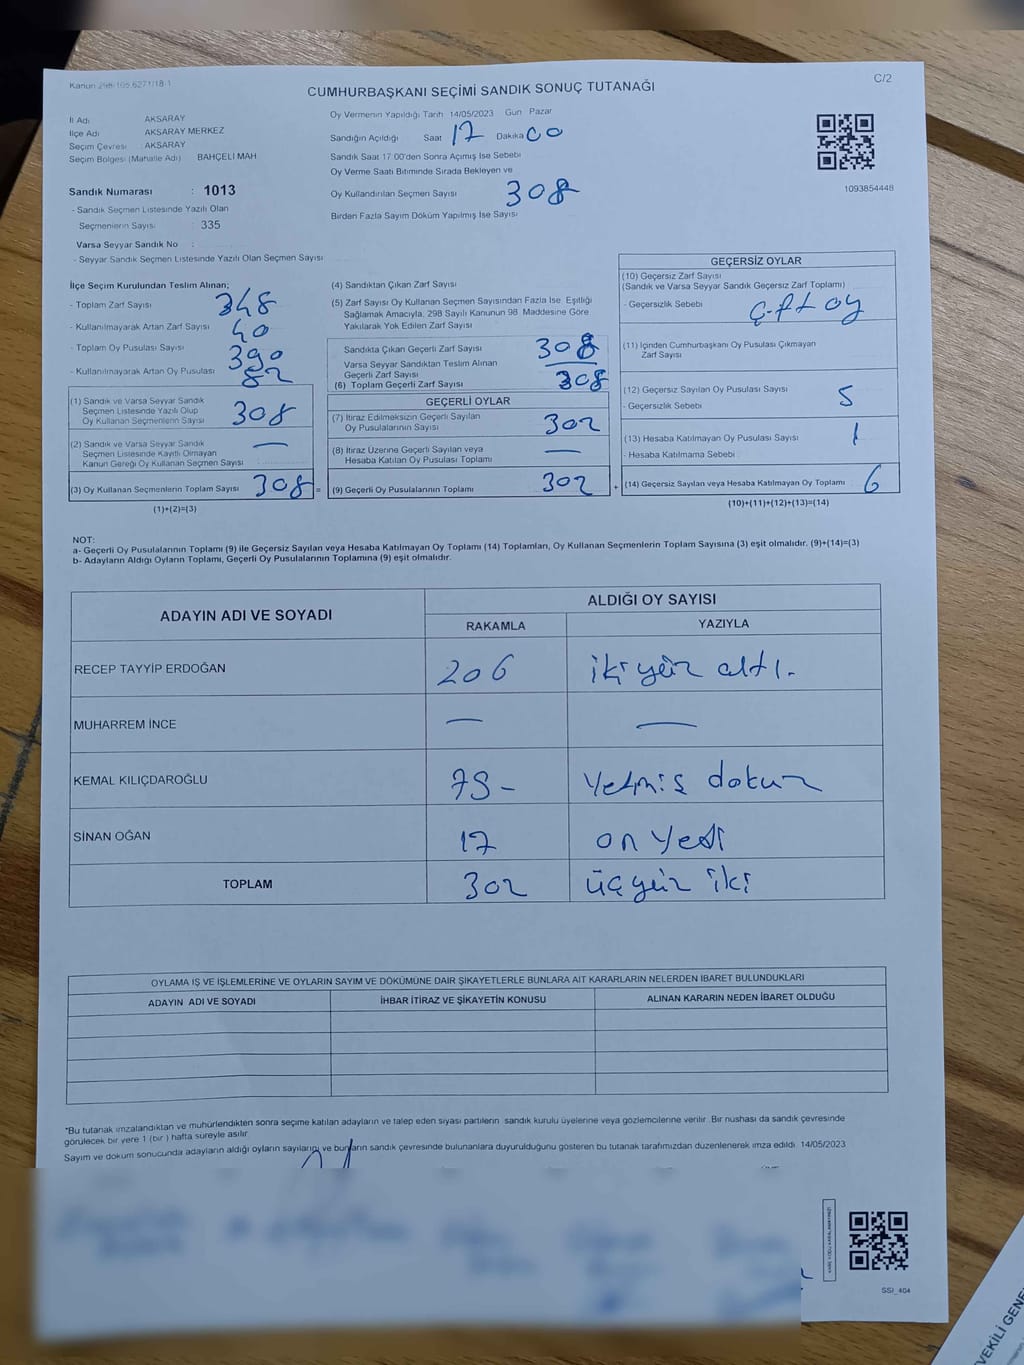 Kanun 298-105,6271/18-1
C/2
CUMHURBAŞKANI SEÇİMİ SANDIK SONUÇ TUTANAĞI
İl Adı AKSARAY
İlçe Adı AKSARAY MERKEZ
Seçim Çevresi : AKSARAY
Seçim Bölgesi (Mahalle Adı) BAHÇELİ MAH
Sandık Numarası : 1013
- Sandık Seçmen Listesinde Yazılı Olan
Seçmenlerin Sayısı : 335
Varsa Seyyar Sandık No :
- Seyyar Sandık Seçmen Listesinde Yazılı Olan Seçmen Sayısı
Oy Vermenin Yapıldığı Tarih 14/05/2023 Gün Pazar
Sandığın Açıldığı Saat 17 Dakika 00
Sandık Saat 17.00'den Sonra Açımış İse Sebebi
Oy Verme Saati Bitiminde Sırada Bekleyen ve
Oy Kullandırılan Seçmen Sayısı 308
Birden Fazla Sayım Döküm Yapılmış İse Sayısı
1093854448
İlçe Seçim Kurulundan Teslim Alınan;
- Toplam Zarf Sayısı 348
- Kullanılmayarak Artan Zarf Sayısı 40
- Toplam Oy Pusulası Sayısı 390
- Kullanılmayarak Artan Oy Pusulası 82
(1) Sandık ve Varsa Seyyar Sandık
Seçmen Listesinde Yazılı Olup
Oy Kullanan Seçmenlerin Sayısı 308
(2) Sandık ve Varsa Seyyar Sandık
Seçmen Listesinde Kayıtlı Olmayan
Kanun Gereği Oy Kullanan Seçmen Sayısı —
(3) Oy Kullanan Seçmenlerin Toplam Sayısı 308 =
(1)+(2)=(3)
(4) Sandıktan Çıkan Zarf Sayısı
(5) Zarf Sayısı Oy Kullanan Seçmen Sayısından Fazla İse Eşitliği
Sağlamak Amacıyla, 298 Sayılı Kanunun 98. Maddesine Göre
Yakılarak Yok Edilen Zarf Sayısı
Sandıkta Çıkan Geçerli Zarf Sayısı 308
Varsa Seyyar Sandıktan Teslim Alınan
Geçerli Zarf Sayısı
(6) Toplam Geçerli Zarf Sayısı 308
GEÇERLİ OYLAR
(7) İtiraz Edilmeksizin Geçerli Sayılan
Oy Pusulalarının Sayısı 302
(8) İtiraz Üzerine Geçerli Sayılan veya
Hesaba Katılan Oy Pusulası Toplamı —
(9) Geçerli Oy Pusulalarının Toplamı 302 +
GEÇERSİZ OYLAR
(10) Geçersiz Zarf Sayısı
(Sandık ve Varsa Seyyar Sandık Geçersiz Zarf Toplamı)
- Geçersizlik Sebebi çift oy
(11) İçinden Cumhurbaşkanı Oy Pusulası Çıkmayan
Zarf Sayısı
(12) Geçersiz Sayılan Oy Pusulası Sayısı 5
- Geçersizlik Sebebi
(13) Hesaba Katılmayan Oy Pusulası Sayısı 1
- Hesaba Katılmama Sebebi
(14) Geçersiz Sayılan veya Hesaba Katılmayan Oy Toplamı 6
(10)+(11)+(12)+(13)=(14)
NOT:
a- Geçerli Oy Pusulalarının Toplamı (9) ile Geçersiz Sayılan veya Hesaba Katılmayan Oy Toplamı (14) Toplamları, Oy Kullanan Seçmenlerin Toplam Sayısına (3) eşit olmalıdır. (9)+(14)=(3)
b- Adayların Aldığı Oyların Toplamı, Geçerli Oy Pusulalarının Toplamına (9) eşit olmalıdır.
ADAYIN ADI VE SOYADI ALDIĞI OY SAYISI
RAKAMLA YAZIYLA
RECEP TAYYİP ERDOĞAN 206 iki yüz altı.
MUHARREM İNCE — —
KEMAL KILIÇDAROĞLU 79- yetmiş dokuz
SİNAN OĞAN 17 on yedi
TOPLAM 302 üç yüz iki
OYLAMA İŞ VE İŞLEMLERİNE VE OYLARIN SAYIM VE DÖKÜMÜNE DAİR ŞİKAYETLERLE BUNLARA AİT KARARLARIN NELERDEN İBARET BULUNDUKLARI
ADAYIN ADI VE SOYADI İHBAR İTİRAZ VE ŞİKAYETİN KONUSU ALINAN KARARIN NEDEN İBARET OLDUĞU
*Bu tutanak imzalandıktan ve mühürlendikten sonra seçime katılan adayların ve talep eden siyasi partilerin sandık kurulu üyelerine veya gözlemcilerine verilir. Bir nüshası da sandık çevresinde
görülecek bir yere 1 (bir) hafta süreyle asılır
Sayım ve döküm sonucunda adayların aldığı oyların sayılarını ve bunların sandık çevresinde bulunanlara duyurulduğunu gösteren bu tutanak tarafımızdan düzenlenerek imza edildi 14/05/2023
SSI_404
VEKİLİ GENE